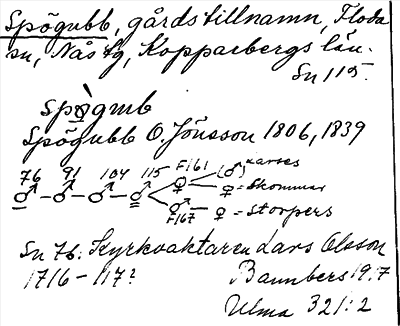 Spögubb, gårdstillnamn, Floda
sn, Nås tg, Kopparbergs län.
Sn 115.
spǫ̀gub
Spögubb O. Jönsson 1806, 1839
76 91 104 115 F161 (♂) karses
♂ – ♂ – ♂ – ♂ ♀ ♀ = Skommar
♂ F167 ♀ = Storpers
Sn 76: Kyrkvaktaren Lars Olsson
1716 – 11?
Bannbers 19:7
Ulma 321:2